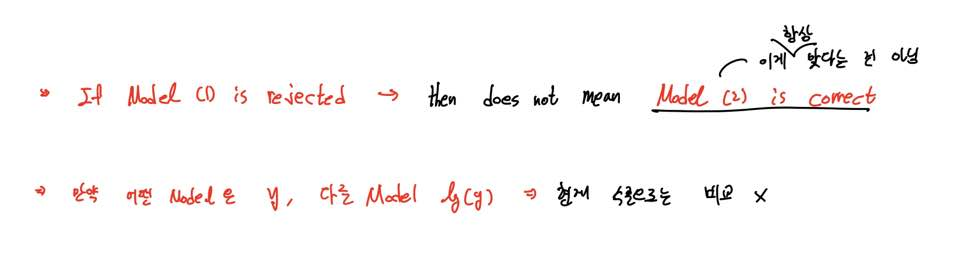 항상
이게 맞다는 건 아님
⇒ If Model (1) is rejected → then does not mean Model (2) is correct
⇒ 만약 어떤 Model은 y, 다른 Model lg(y) ⇒ 현재 수준으로는 비교 X